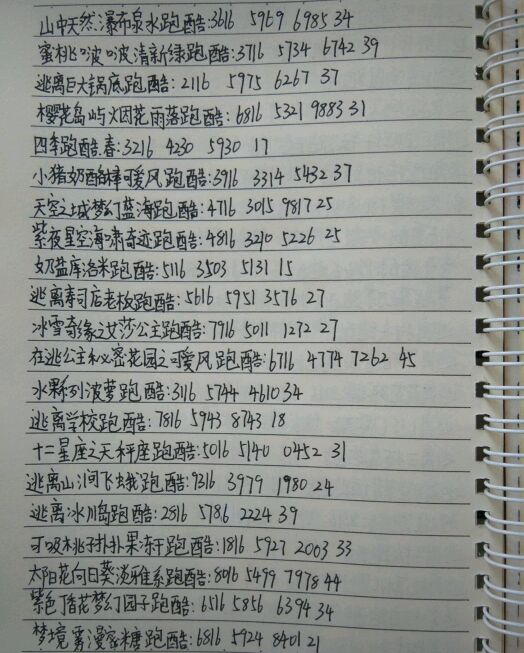 山中天然瀑布泉水跑酷:3616 5969 6985 34
蜜桃啵啵清新绿跑酷:3716 5734 6742 39
逃离巨大锅底跑酷:2116 5975 6267 37
樱花岛屿烟花雨落跑酷:6816 5321 9883 31
四季跑酷.春:3216 4230 5930 17
小猪奶酪棒可爱风跑酷:3916 3314 5432 37
天空之城梦幻蓝海跑酷:4716 3015 9817 25
紫夜星空海啸奇迹跑酷:4816 3210 5226 25
奶盐库洛米跑酷:5116 3503 5131 15
逃离寿司店老板跑酷:5616 5951 3576 27
冰雪奇缘之艾莎公主跑酷:7916 5011 1272 27
在逃公主秘密花园之可爱风跑酷:6716 4774 7262 45
水果系列菠萝跑酷:3116 5744 4610 34
逃离学校跑酷:7816 5943 8743 18
十二星座之天秤座跑酷:5016 5140 0452 31
逃离山涧飞蛾跑酷:9316 3979 1980 24
逃离冰川岛跑酷:2816 5786 2224 39
可吸桃子扑扑果冻干跑酷:1816 5927 2003 33
太阳花向日葵淡雅系跑酷:8016 5499 7978 44
紫色丁香花梦幻园子跑酷:6516 5856 6394 34
梦境雾漫蜜糖跑酷:6816 5924 8401 21